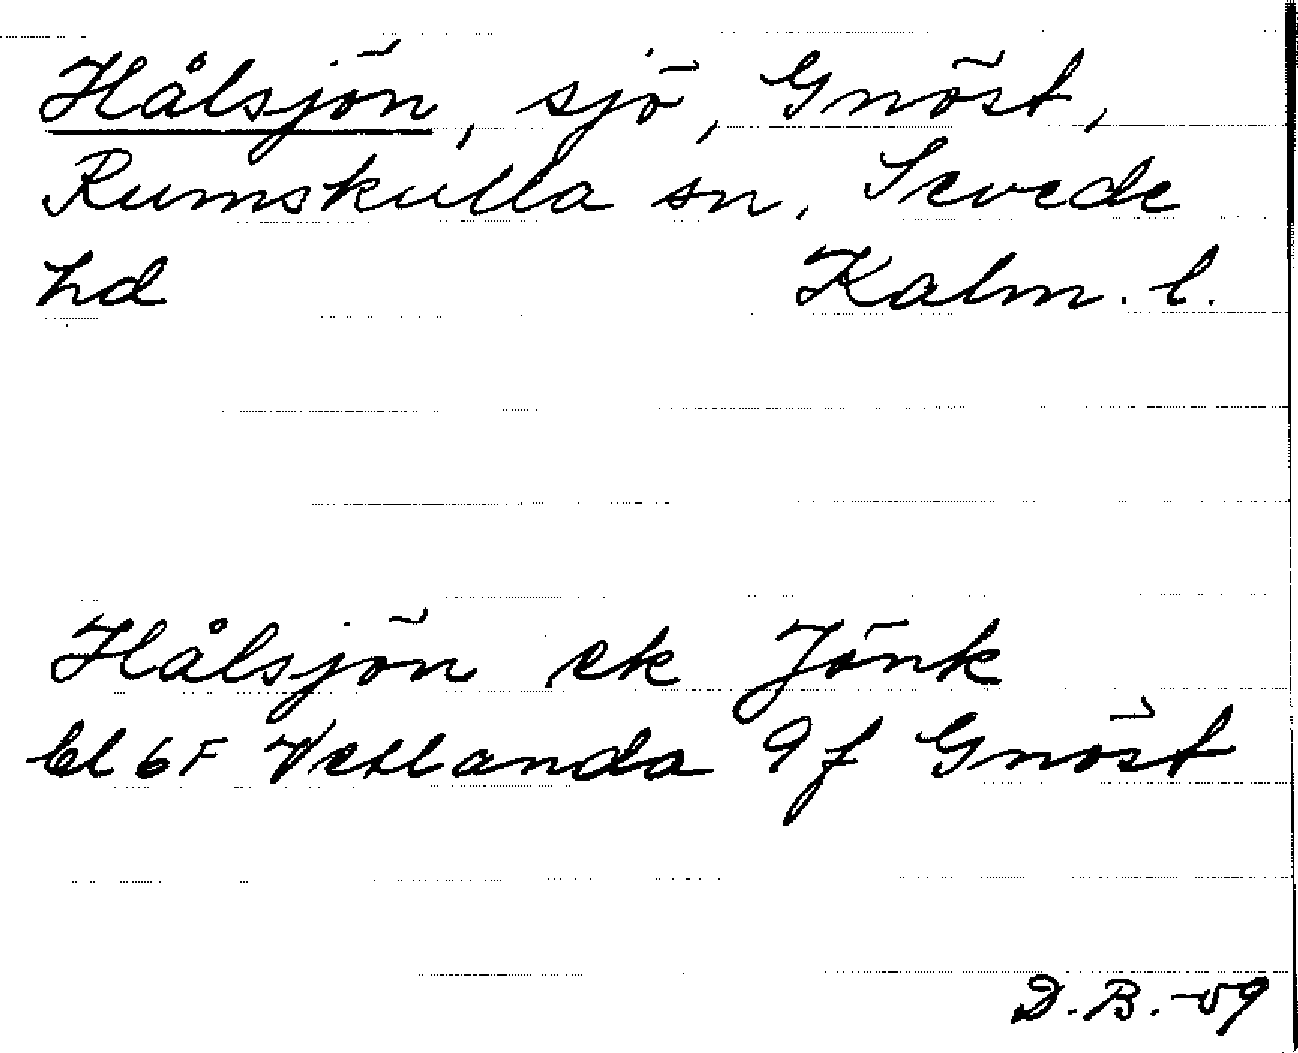 Hålsjön, sjö, Gnöst,
Rumskulla sn, Sevede
hd Kalm. l.
Hålsjön ek Jönk
bl 6F Vetlanda 9f Gnöst
D.B.-59